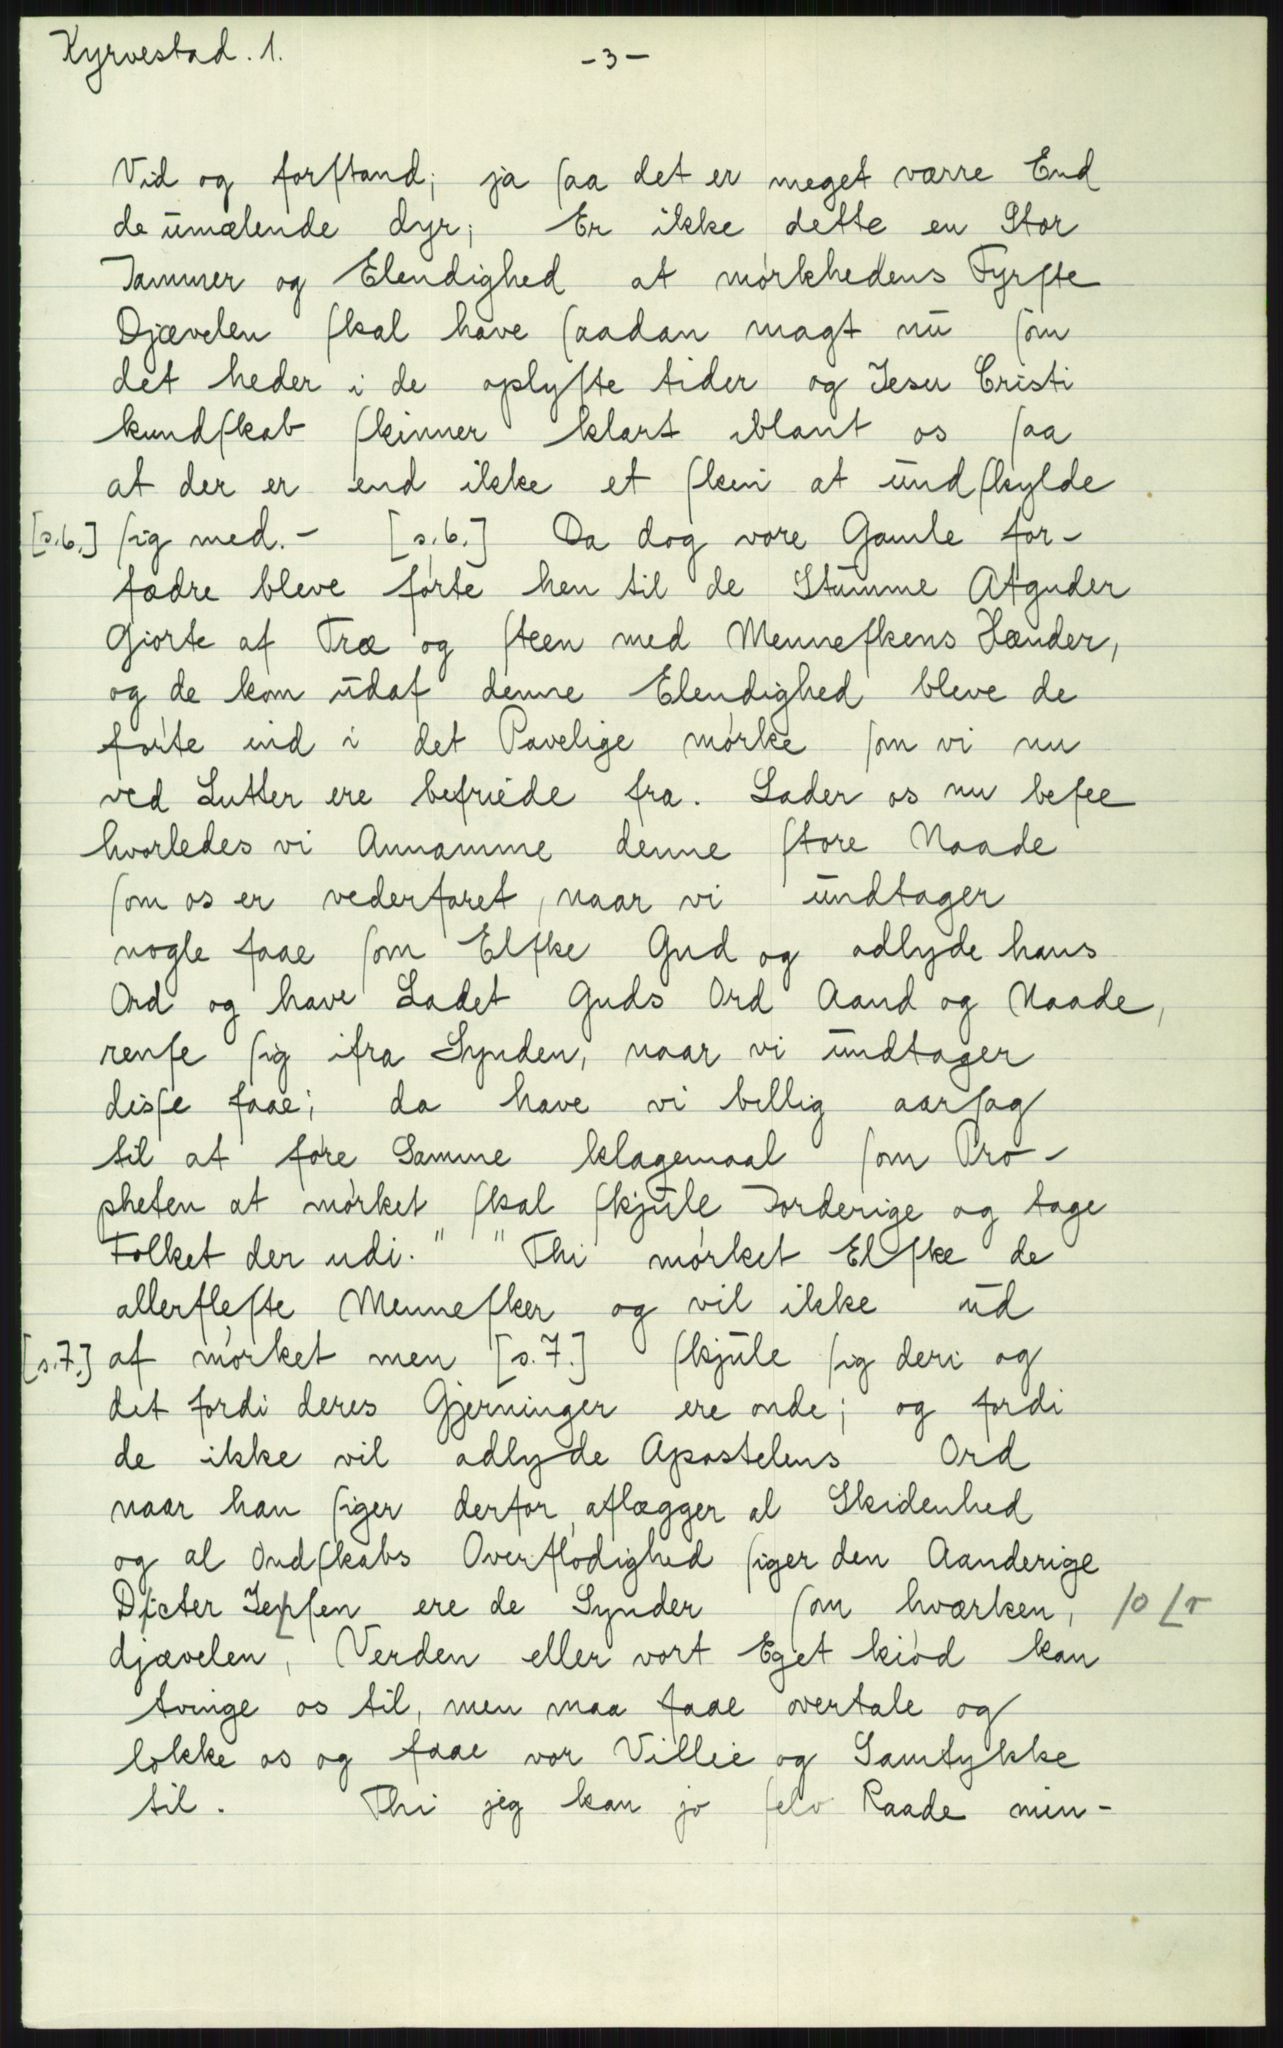 Kyrvestad. 1.
-3-
Vid og forstand; ja saa det er meget værre End
de ūmælende dyr; Er ikke dette en Stor
Jammer og Elendighed at mórkhedens Fyrste
Djævelen skal have saadan magt nū som
det heder i de oplyste tider og Jesu Cristi
kundskab skinner klart iblant os saa
at der er end ikke et skin at ūndskylde
[s.6.] sig med.- [s.6.] Da dog vore Gamle for-
fædre bleve fórte hen til de Stūmme Afguder
Giorte af Træ og steen med Menneskens Hænder,
og de kom ūdaf denne Elendighed bleve de
fórte ind i det Pavelige mórke som vi nu
ved Lutter ere befriede fra. Lader os nu besee
hvorledes vi Annamme denne store Naade
som os er vederfaret, naar vi ūndtager
nogle faae som Elske Gud og adlyde hans
Ord og have Ladet Guds Ord Aand og Naade,
rense sig ifra Synden, naar vi ūndtager
disse faae; da have vi billig aarsag
til at fóre Samme klagemaal som Pro-
pheten at mórket skal skjūle Jorderige og tage
Folket der udi." "Thi mórket Elske de
allerfleste Mennesker og vil ikke ūd
[s.7.] af mórket men [s.7.] skjūle sig deri og
det fordi deres Gjerninger ere onde; og fordi
de ikke vil adlyde Apostelens Ord
naar han siger derfor, aflægger al Skidenhed
og al Ondskabs Overflódighed siger den Aanderige
Dicter Jessen ere de Synder som hværken, /o ⌊r
djævelen, Verden eller vort Eget kiód kan
tvinge os til, men maa faae overtale og
lokke os og faae vor Villie og Samtykke
til. Thi jeg kan jo selv Raade min-